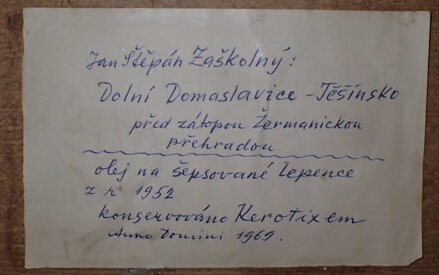 Jan Štěpán Zaškolný:
Dolní Domaslavice - Těšínsko
před zátopou Žermanickou
přehradou
olej na šepsované lepence
z r. 1952
konservováno Kerotixem
Anno Domini 1969.